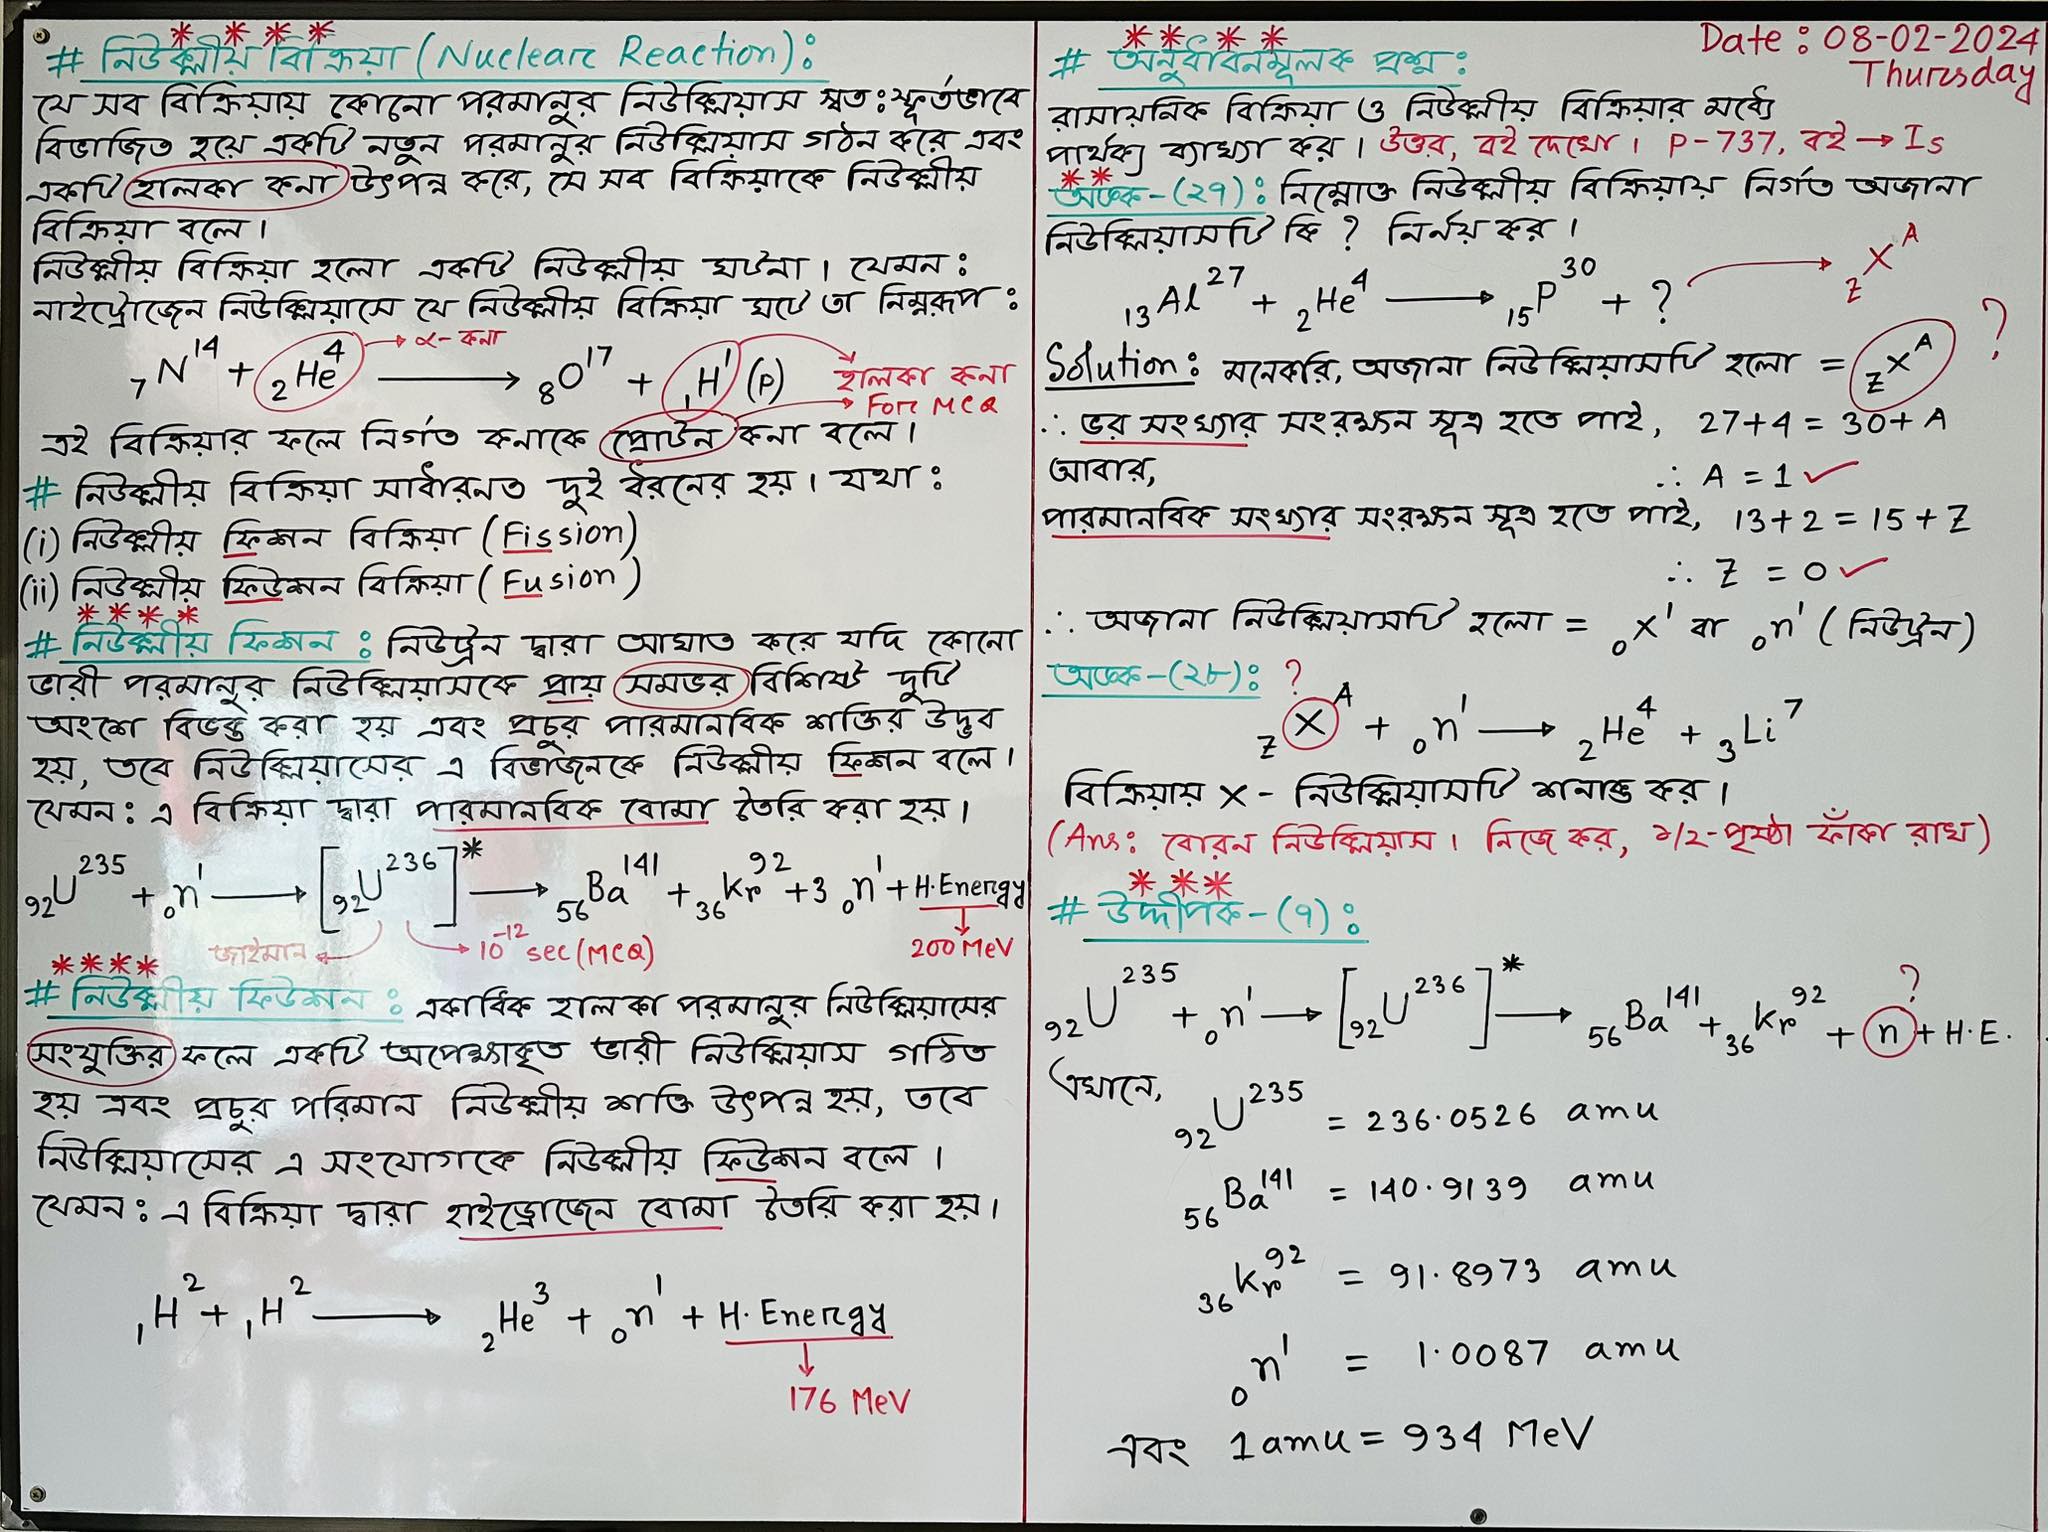 # নিউক্লীয় বিক্রিয়া (Nuclear Reaction) :
যে সব বিক্রিয়ায় কোনো পরমানুর নিউক্লিয়াস স্বত:স্ফূর্তভাবে
বিভাজিত হয়ে একটি নতুন পরমানুর নিউক্লিয়াস গঠন করে এবং
একটি হালকা কনা উৎপন্ন করে, সে সব বিক্রিয়াকে নিউক্লীয়
বিক্রিয়া বলে।
নিউক্লীয় বিক্রিয়া হলো একটি নিউক্লীয় ঘটনা। যেমন :
নাইট্রোজেন নিউক্লিয়াসে যে নিউক্লীয় বিক্রিয়া ঘটে তা নিম্নরূপ :
₇N¹⁴ + ₂He⁴ → ₈O¹⁷ + ₁H¹ (p)
→ α- কনা
হালকা কনা
For MCQ
এই বিক্রিয়ার ফলে নির্গত কনাকে প্রোটন কনা বলে।
# নিউক্লীয় বিক্রিয়া সাধারনত দুই ধরনের হয়। যথা :
(i) নিউক্লীয় ফিশন বিক্রিয়া (Fission)
(ii) নিউক্লীয় ফিউশন বিক্রিয়া (Fusion)
# নিউক্লীয় ফিশন : নিউট্রন দ্বারা আঘাত করে যদি কোনো
ভারী পরমানুর নিউক্লিয়াসকে প্রায় সমভর বিশিষ্ট দুটি
অংশে বিভক্ত করা হয় এবং প্রচুর পারমানবিক শক্তির উদ্ভব
হয়, তবে নিউক্লিয়াসের এ বিভাজনকে নিউক্লীয় ফিশন বলে।
যেমন : এ বিক্রিয়া দ্বারা পারমানবিক বোমা তৈরি করা হয়।
₉₂U²³⁵ + ₀n¹ → [₉₂U²³⁶]* → ₅₆Ba¹⁴¹ + ₃₆Kr⁹² + 3 ₀n¹ + H.Energy
→ 10⁻¹² sec (MCQ)
200 MeV
# নিউক্লীয় ফিউশন : একাধিক হালকা পরমানুর নিউক্লিয়াসের
সংযুক্তির ফলে একটি অপেক্ষাকৃত ভারী নিউক্লিয়াস গঠিত
হয় এবং প্রচুর পরিমান নিউক্লীয় শক্তি উৎপন্ন হয়, তবে
নিউক্লিয়াসের এ সংযোগকে নিউক্লীয় ফিউশন বলে।
যেমন : এ বিক্রিয়া দ্বারা হাইড্রোজেন বোমা তৈরি করা হয়।
₁H² + ₁H² → ₂He³ + ₀n¹ + H.Energy
176 MeV
Date : 08-02-2024
Thursday
# অনুধাবনমূলক প্রশ্ন :
রাসায়নিক বিক্রিয়া ও নিউক্লীয় বিক্রিয়ার মধ্যে
পার্থক্য ব্যাখ্যা কর। উত্তর, বই দেখো। P-737, বই → Is
অঙ্ক-(২৭) : নিম্নোক্ত নিউক্লীয় বিক্রিয়ায় নির্গত অজানা
নিউক্লিয়াসটি কি ? নির্নয় কর।
₁₃Al²⁷ + ₂He⁴ → ₁₅P³⁰ + ? → zXᴬ
Solution : মনেকরি, অজানা নিউক্লিয়াসটি হলো = zXᴬ ?
∴ ভর সংখ্যার সংরক্ষন সূত্র হতে পাই, 27+4 = 30+A
আবার, ∴ A = 1 ✓
পারমানবিক সংখ্যার সংরক্ষন সূত্র হতে পাই, 13+2 = 15+Z
∴ Z = 0 ✓
∴ অজানা নিউক্লিয়াসটি হলো = ₀X¹ বা ₀n¹ (নিউট্রন)
অঙ্ক-(২৮) : ?
zXᴬ + ₀n¹ → ₂He⁴ + ₃Li⁷
বিক্রিয়ায় X - নিউক্লিয়াসটি শনাক্ত কর।
(Ans : বোরন নিউক্লিয়াস। নিজে কর, ১/২-পৃষ্ঠা ফাঁকা রাখ)
# উদ্দীপক-(৭) :
₉₂U²³⁵ + ₀n¹ → [₉₂U²³⁶]* → ₅₆Ba¹⁴¹ + ₃₆Kr⁹² + n + H.E.
?
এখানে,
₉₂U²³⁵ = 236.0526 amu
₅₆Ba¹⁴¹ = 140.9139 amu
₃₆Kr⁹² = 91.8973 amu
₀n¹ = 1.0087 amu
এবং 1 amu = 934 MeV